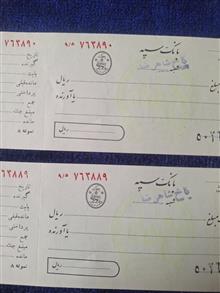 ۷۶۳۸۹۰
۹/۵ ۷۶۳۸۹۰
بانک سپه
تاریخ
گیرنده
بابت
مانده قبلی
پرداختی
جمع
مبلغ چک
مانده
نمونه ۸
ریال
یا آورنده
مبلغ
ریال
۷۶۳۸۸۹
۹/۵ ۷۶۳۸۸۹
بانک سپه
تاریخ
گیرنده
بابت
مانده قبلی
پرداختی
جمع
مبلغ چک
مانده
نمونه ۸
ریال
یا آورنده
مبلغ
ریال